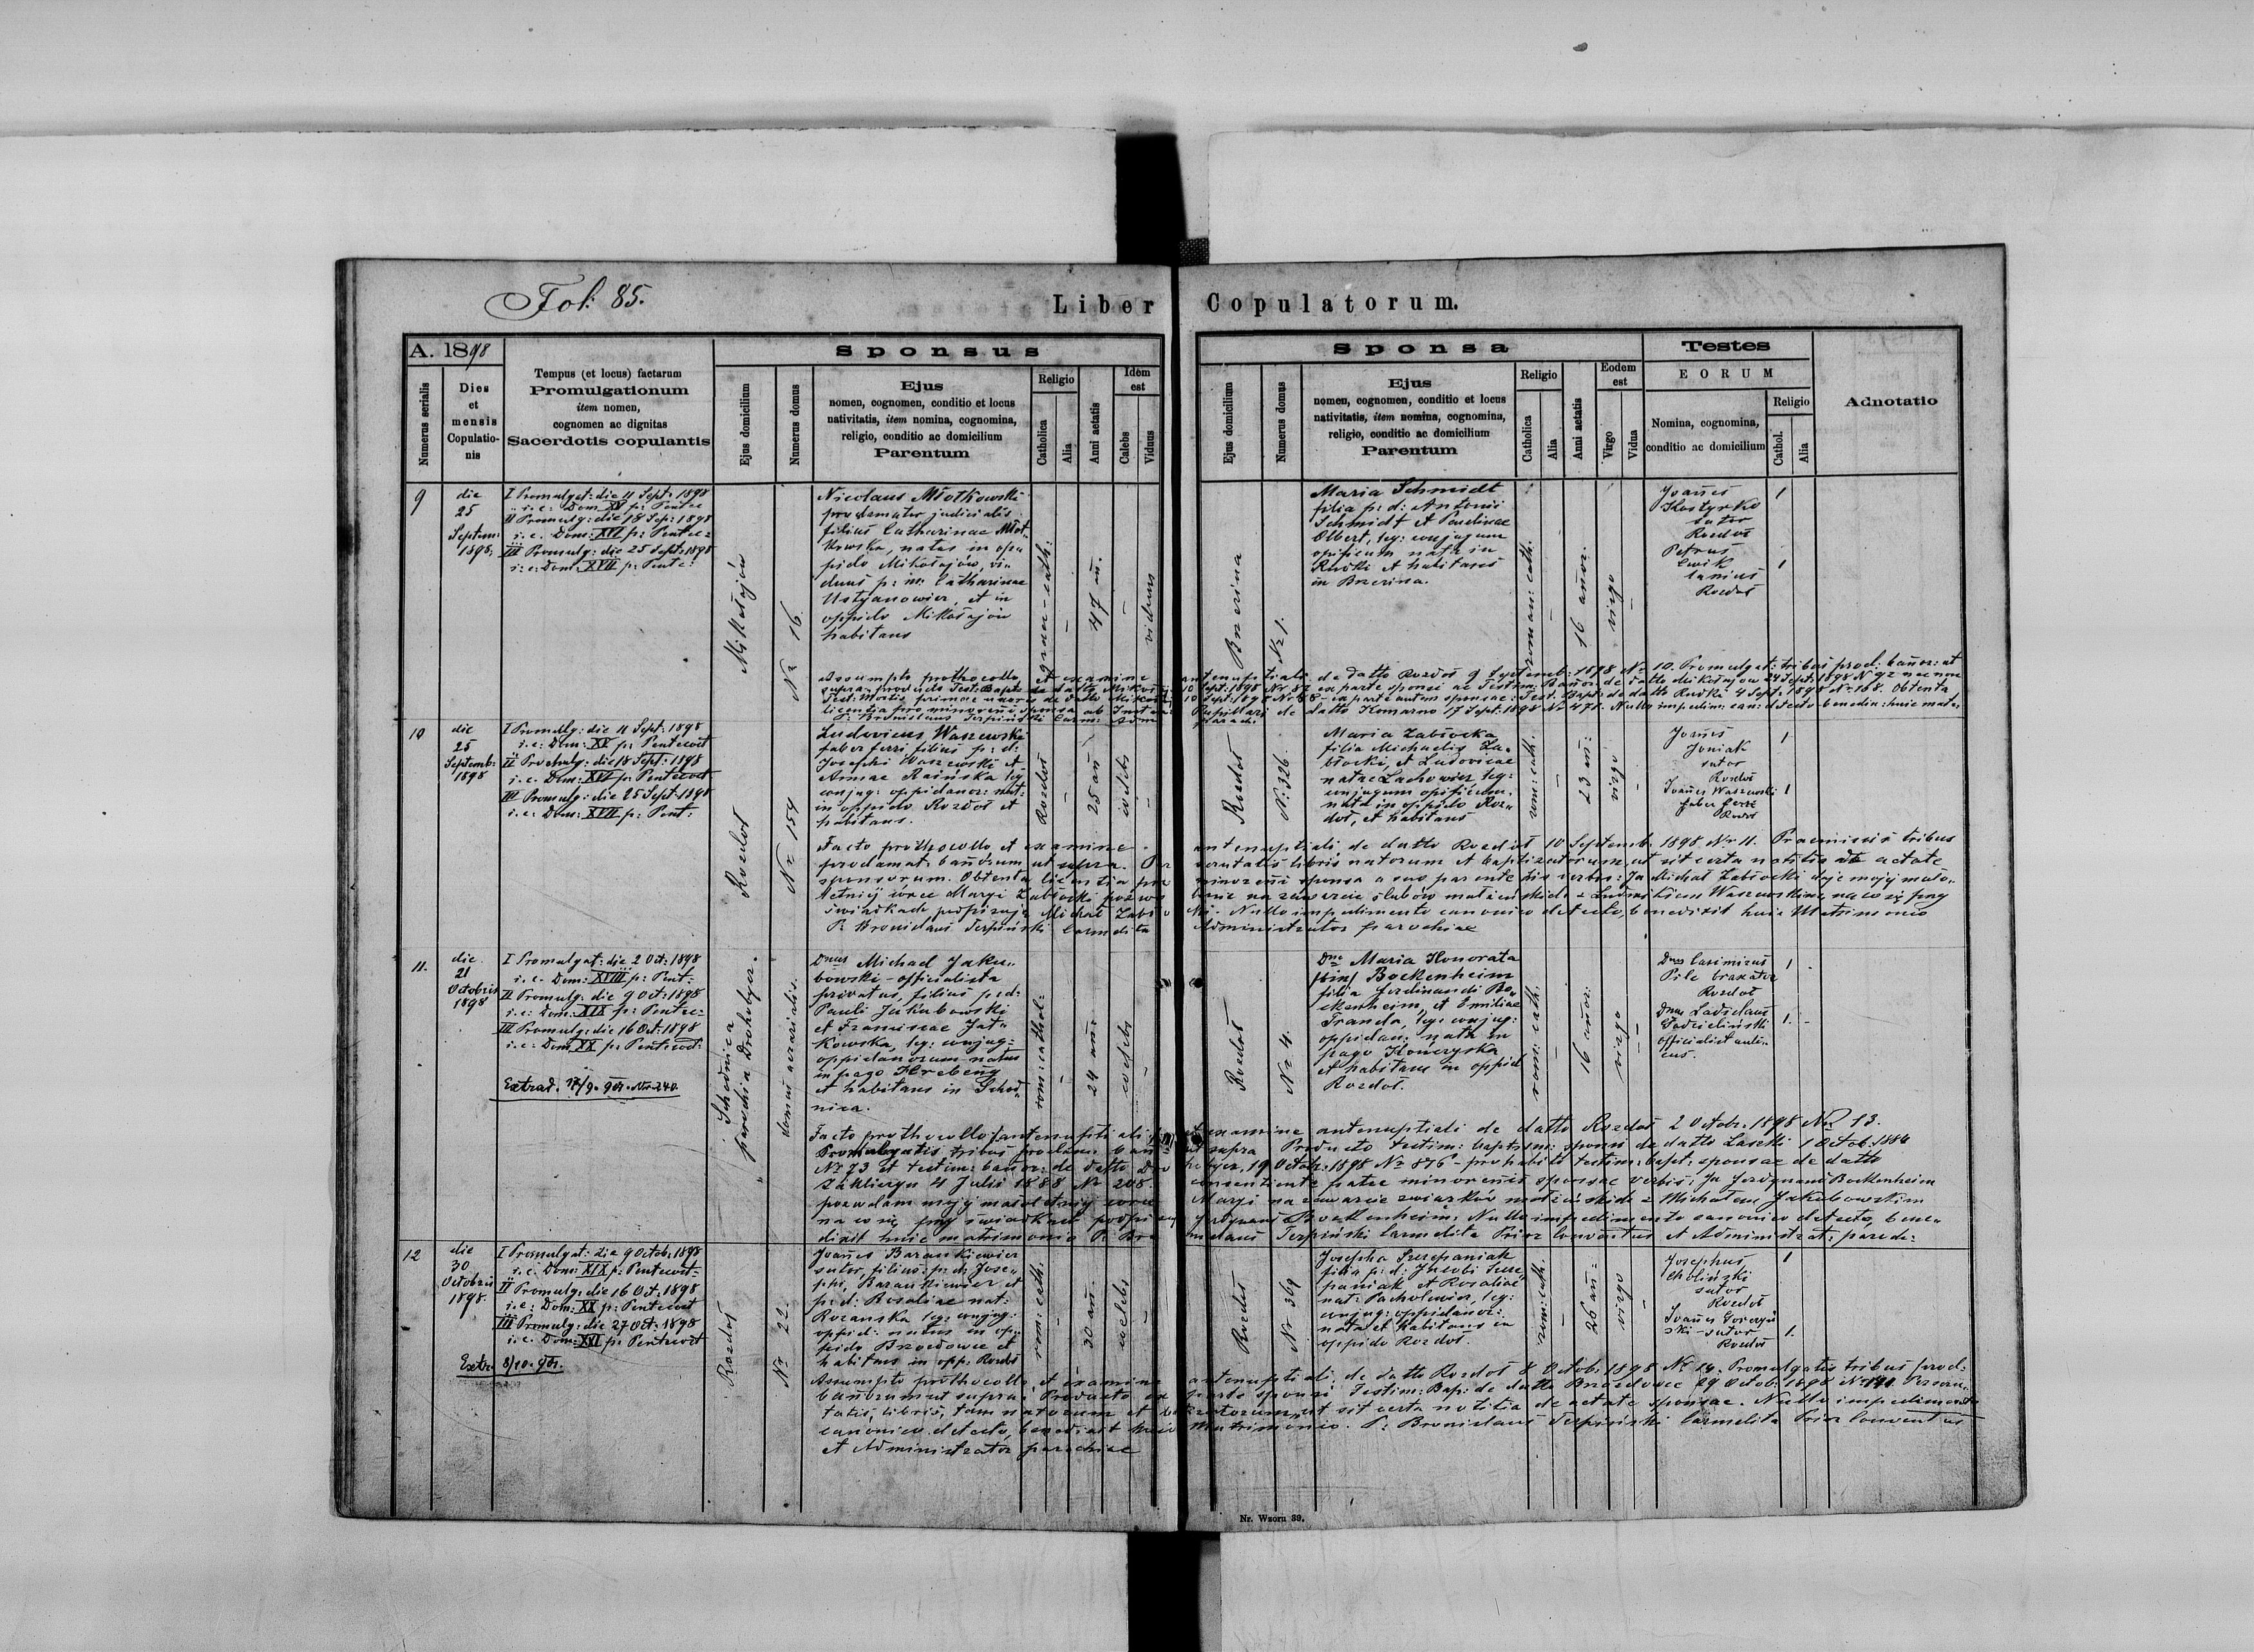 Fol: 85.
Liber Copulatorum.
A. 1898
Numerus serialis
Dies
et
mensis
Copulatio-
nis
Tempus (et locus) factarum
Promulgationum
item nomen,
cognomen ac dignitas
Sacerdotis copulantis
Sponsus
Ejus domicilium
Numerus domus
Ejus
nomen, cognomen, conditio et locus
nativitatis, item nomina, cognomina,
religio, conditio ac domicilium
Parentum
Religio
Catholica
Alia
Anni aetatis
Idem
est
Calebs
Viduus
Sponsa
Ejus domicilium
Numerus domus
Ejus
nomen, cognomen, conditio et locus
nativitatis, item nomina, cognomina,
religio, conditio ac domicilium
Parentum
Religio
Catholica
Alia
Anni aetatis
Eodem
est
Virgo
Vidua
Testes
EORUM
Nomina, cognomina,
conditio ac domicilium
Religio
Cathol.
Alia
Adnotatio
9
die
25
Septem:
1898.
I Promulgat: die 11 Sept: 1898
i. e: Dom: XV p: Pentec
II Promulg: die 18 Sep: 1898
i. e. Dom: XVI p: Pentec:
III Promulg: die 25 Sept: 1898
i: e: Dom: XVII p: Pentec:
Mikołajów
Nr 16.
Nicolaus Młotkowski
judicialis
filius Catharinae Młot-
kowska, natus in op-
pido Mikołajów, vi-
duus p: m: Catharinae
Ustyanowicz, et in
oppido Mikołajów
habitans
graec-cath:
-
47 an:
-
viduus
Brzezina
Nr 1.
Maria Schmidt
filia p: d: Antonii
Schmidt et Paulinae
Olbert, leg: conjugum
opificum nata in
Rudki et habitans
in Brzezina.
roman: cath:
-
16 anor:
virgo
-
Joanes
Kostyrko
sutor
Rozdoł
1
Petrus
Cwik
lanius
Rozdoł
1
Assumpto prothocollo et examine antenuptiali de datto Rozdoł 9 Septemb: 1898 Nr 10. Promulgat: tribus procl: banor: ut
licentia pro minorenni sponsa de datto Komarno 17 Sept: 1898 Nr 471. Nullo impedim: can: detecto benedix: huic mat:
P: Bronislaus Terpiński Carm:
10
die
25
Septemb:
1898
I Promulg: die 11 Sept: 1898
i. e: Dom: XV p: Pentecost
II Promulg: die 18 Sept: 1898
i. e. Dom: XVI p: Pentecost
III Promulg: die 25 Sept: 1898
i. e: Dom: XVII p: Pent:
Rozdoł
Nr 154
Ludovicus Waszewski
faber ferri filius p: d:
Josephi Waszewski et
Annae Raińska leg:
conjug: oppidanor: nat:
in oppido Rozdoł et
habitans.
Rozdoł
-
25 an:
coelebs
-
Rozdoł
Nr: 326
Maria Zabłocka
filia Michaelis Za-
błocki, et Ludovicae
natae Lachowicz leg:
conjugum opificum
nata in oppido Roz-
doł, et habitans
rom: cath.
-
23 an:
virgo
-
Joanes
Joniak
sutor
Rozdoł
1
Joanes Waszewski
faber ferri
Rozdoł
1
Facto prothocollo et examine antenuptiali de datto Rozdoł 10 Septemb: 1898 Nr 11. Praemissis tribus
proclamat: banorum ut supra. Perscrutatis libris natorum et baptizatorum, ut sit certa notitia de aetate
sponsorum. Obtenta licentia pro minoreni sponsa a suo parente his verbis: Ja Michał Zabłocki daję mojej mało-
letniej córce Maryi Zabłocki pozwolenie na zawarcie ślubów małżeńskich z Ludwikiem Waszewskim, na co się przy
świadkach podpisuję Michał Zabłocki. Nullo impedimento canonico detecto, benedixit huic Matrimonio
P: Bronislaus Terpiński Carmelita Administrator parochiae
11.
die
21
Octobris
1898
I Promulgat: die 2 Oct: 1898
i. e. Dom: XVIII p: Pent:
II Promulg: die 9 Oct: 1898
i. e: Dom: XIX p: Pentec:
III Promulg: die 16 Oct: 1898
i. e: Dom: XX p: Pentecost:
Extrad. 17/9. 901. Nr 240
Schodnica
parochia Drohobycz.
domus aerarialis.
Dnus Michael Jaku-
bowski - officialista
privatus, filius p: d:
Pauli Jakubowski
et Franciscae Jat-
kowska, leg: conjug:
oppidanorum natus
in pago Hrebeny
et habitans in Schod-
nica.
rom: cathol:
-
24 an:
coelebs
-
Rozdoł
Nr 4.
Dna Maria Honorata
Bockenheim
filia Ferdinandi Bo-
ckenheim, et Emiliae
Tranda, leg: conjug:
oppidan: nata in
pago Kończyska
et habitans in oppid
Rozdoł.
rom: cath.
-
16 anor:
virgo
-
Dnus Casimirus
Pilc braxator
Rozdoł
1.
Dnus Ladislaus
officialist auti-
cus.
1.
Facto prothocollo antenuptiali et examine antenuptiali de datto Rozdoł 2 Octobr: 1898 Nr 13.
Promulgatis tribus proclam: ban: ut supra Producto testim: baptism: sponsi de datto Laszki 1 Octob: 1886
Nr 73 et testim: banor: de datto Drohobycz, 19 Octob: 1898 Nr 876 - prohabito testim: bapt: sponsae de datto
Zakliczyn 4 Julii 1888 Nr 208. consentiente patre minorenis sponsae verbis: Ja Ferdynand Bockenheim
pozwalam mojej małoletniej córce Maryi na zawarcie związków małżeńskich z Michałem Jakubowskim
na co się przy świadkach podpisuję Ferdynand Bockenheim. Nullo impedimento canonico detecto, bene-
dixit huic matrimonio P. Bronislaus Terpiński Carmelita Prior Conventus et Administrat: paroch:
12
die
30
Octobris
1898.
I Promulgat: die 9 Octob: 1898
i. e. Dom: XIX p: Pentecost-
II Promulg: die 16 Oct: 1898
i. e: Dom: XX p: Pentecost
III Promulg: die 27 Oct: 1898
i. e. Dom: XXI p: Pentecost
Extr. 8/10. 901.
Rozdoł
Nr 22.
Joanes Barankiewicz
sutor, filius p: d: Jose-
phi, Barankiewicz et
p: d: Rosaliae nat:
Rozanska leg: conjug:
oppid: natus in op-
pido Brzozdowce et
habitans in opp: Rozdoł
rom: cath.
-
30 an:
caelebs
-
Rozdoł
Nr 369
Josepha Szczepaniak
filia p: d: Jacobi Szcze-
paniak et Rosaliae
nat: Pacholewicz, leg:
conjug: oppidanor:
nata et habitans in
oppido Rozdoł.
rom: cath.
-
26 an:
virgo
-
Josephus
Choliński
sutor
Rozdoł
1
Joanes
ski - sutor
Rozdoł
1.
Assumpto prothocollo et examine antenuptiali: de datto Rozdoł 8 Octob: 1898 Nr 14. Promulgatis tribus procl:
banorum ut supra. Producto ex parte sponsi Testim: Bap: de datto Brzozdowce 29 Octob: 1898 Perscru-
tatis, libris, tam natorum et ut sit certa notitia de aetate sponsae. Nullo impedimento
canonico detecto, benedixit huic Matrimonio. P: Bronislaus Terpiński Carmelita Prior Conventus
et Administrator parochiae
Nr. Wzoru 39.